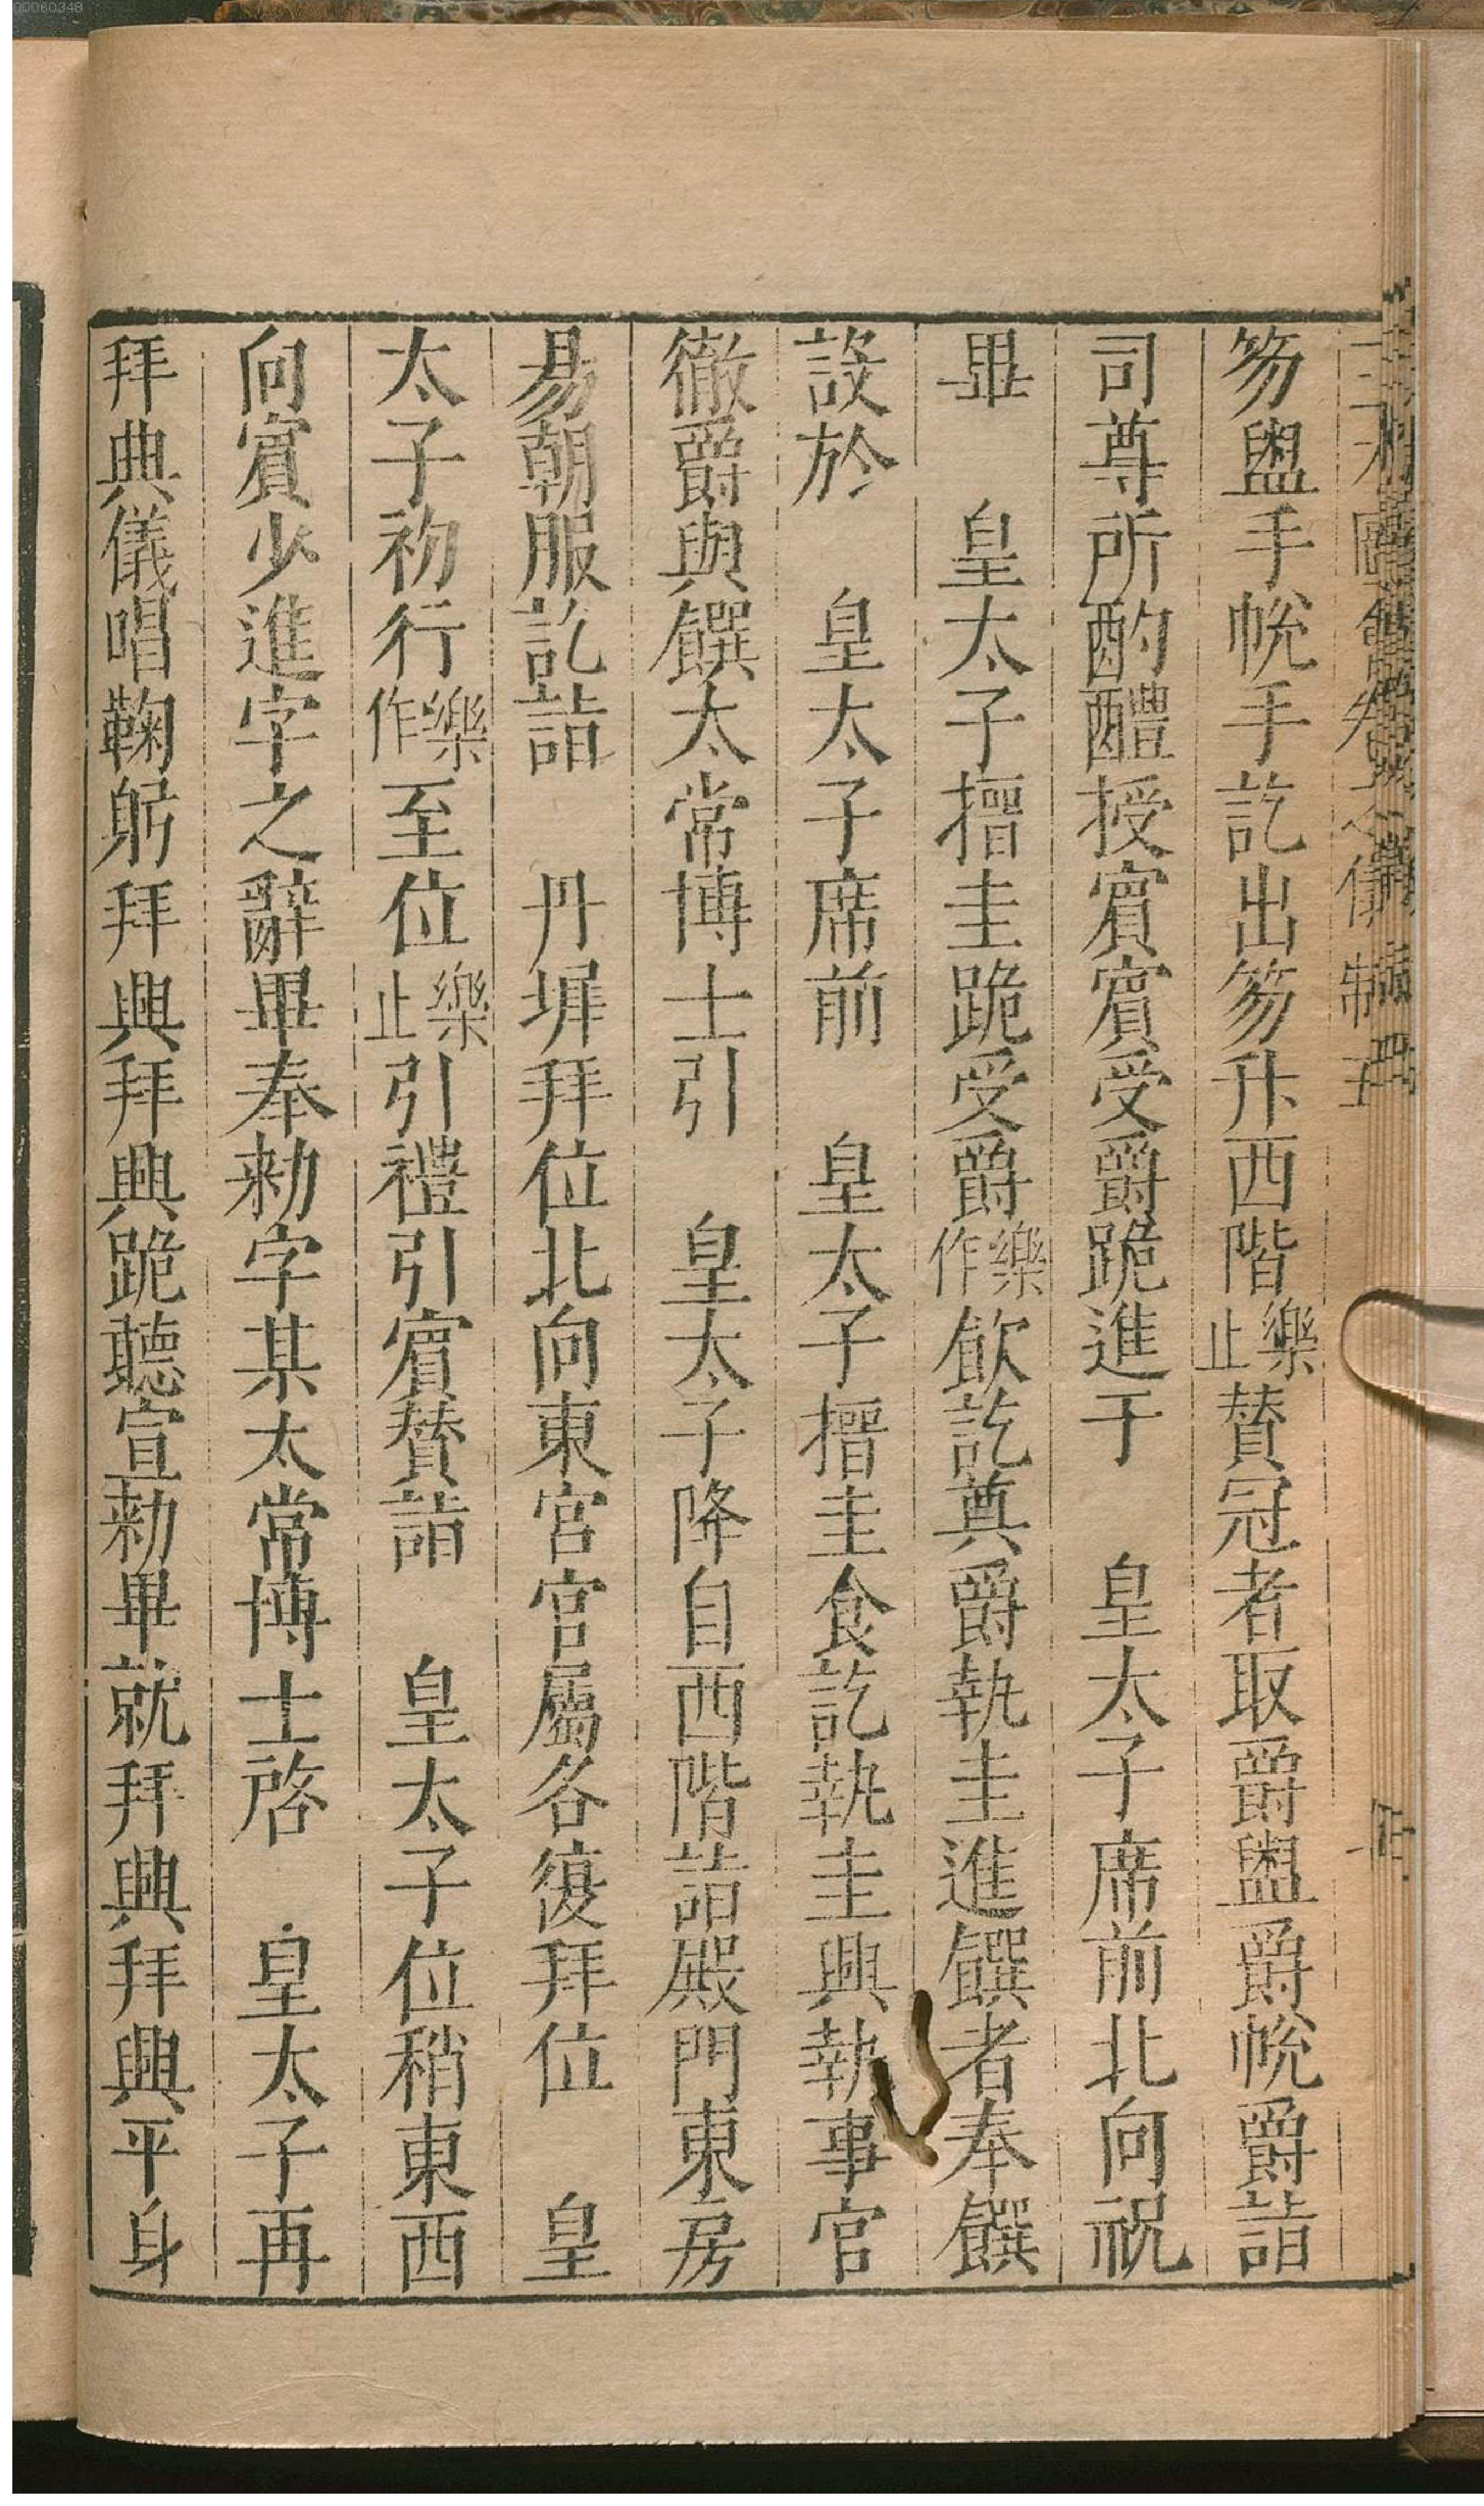 00060348
笏盥手帨手訖出笏升西階樂止賛冠者取爵盥爵帨爵詣
司尊所酌醴授賔賔受爵跪進于　皇太子席前北向祝
畢　皇太子搢圭跪受爵樂作飲訖奠爵執圭進饌者奉饌
設於　皇太子席前　皇太子搢圭食訖執圭興執事官
徹爵與饌太常博士引　皇太子降自西階詣殿門東房
易朝服訖詣　丹墀拜位北向東宮官屬各復拜位　皇
太子初行樂作至位樂止引禮引賔賛詣　皇太子位稍東西
向賔少進字之辭畢奉勑字某太常博士啓　皇太子再
拜典儀唱鞠躬拜興拜興跪聽宣勑畢就拜興拜興平身